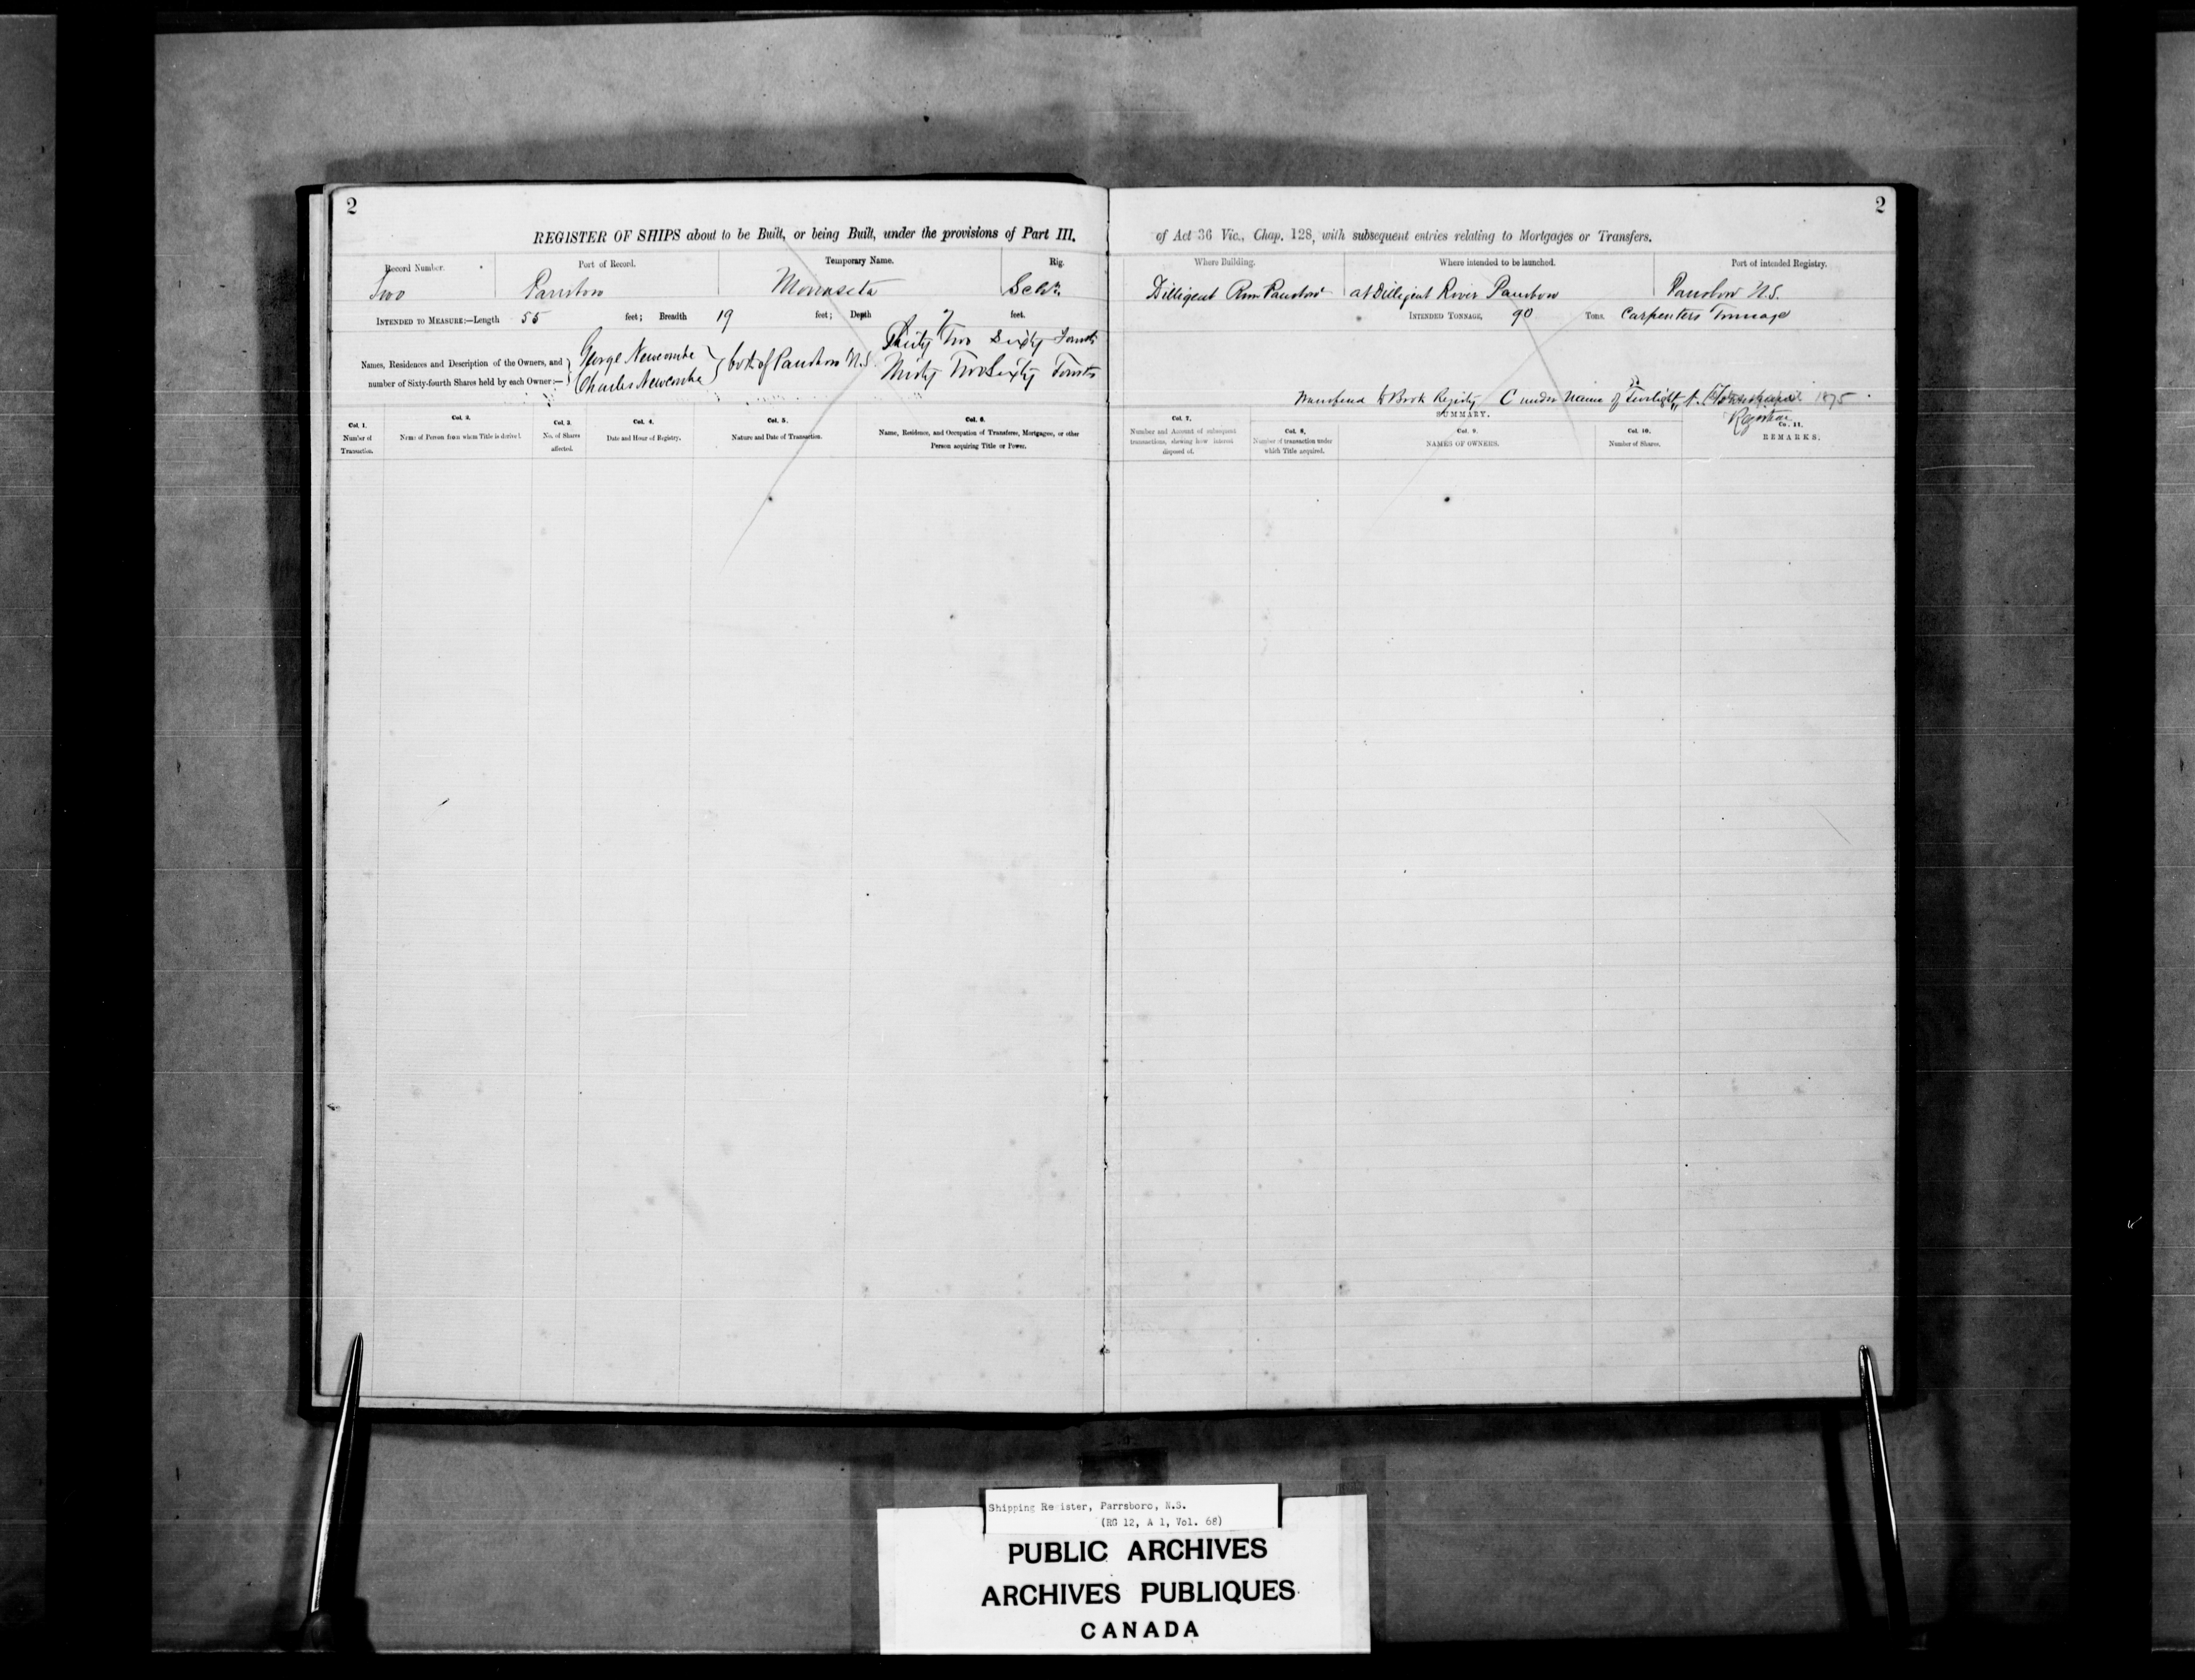 2
2
REGISTER OF SHIPS about to be Built, or being Built, under the provisions of Part III. of Act 36 Vic., Chap. 128, with subsequent entries relating to Mortgages or Transfers.
Record Number. Port of Record. Temporary Name. Rig. Where Building. Where intended to be launched. Port of intended Registry.
Two Parrsboro Schr. Dilligent River Parrsboro at Dilligent River Parrsboro Parrsboro N.S.
INTENDED TO MEASURE:—Length 55 feet; Breadth 19 feet; Depth 7 feet. INTENDED TONNAGE, 90 Tons. Carpenters Tonnage
Names, Residences and Description of the Owners, and number of Sixty-fourth Shares held by each Owner:—
George Newcombe Thirty Two Sixty Fourths
both of Parrsboro N.S.
Charles Newcombe Thirty Two Sixty Fourths
to Book Registry C under Name of Twilight 1875
Registrar
SUMMARY.
Col. 1. Number of Transaction.
Col. 2. Name of Person from whom Title is derived.
Col. 3. No. of Shares affected.
Col. 4. Date and Hour of Registry.
Col. 5. Nature and Date of Transaction.
Col. 6. Name, Residence, and Occupation of Transferee, Mortgagee, or other Person acquiring Title or Power.
Col. 7. Number and Amount of subsequent transactions, shewing how interest disposed of.
Col. 8. Number of transaction under which Title acquired.
Col. 9. NAMES OF OWNERS.
Col. 10. Number of Shares.
Co. 11. REMARKS.
Shipping Re ister, Parrsboro, N.S.
(RG 12, A 1, Vol. 68)
PUBLIC ARCHIVES
ARCHIVES PUBLIQUES
CANADA